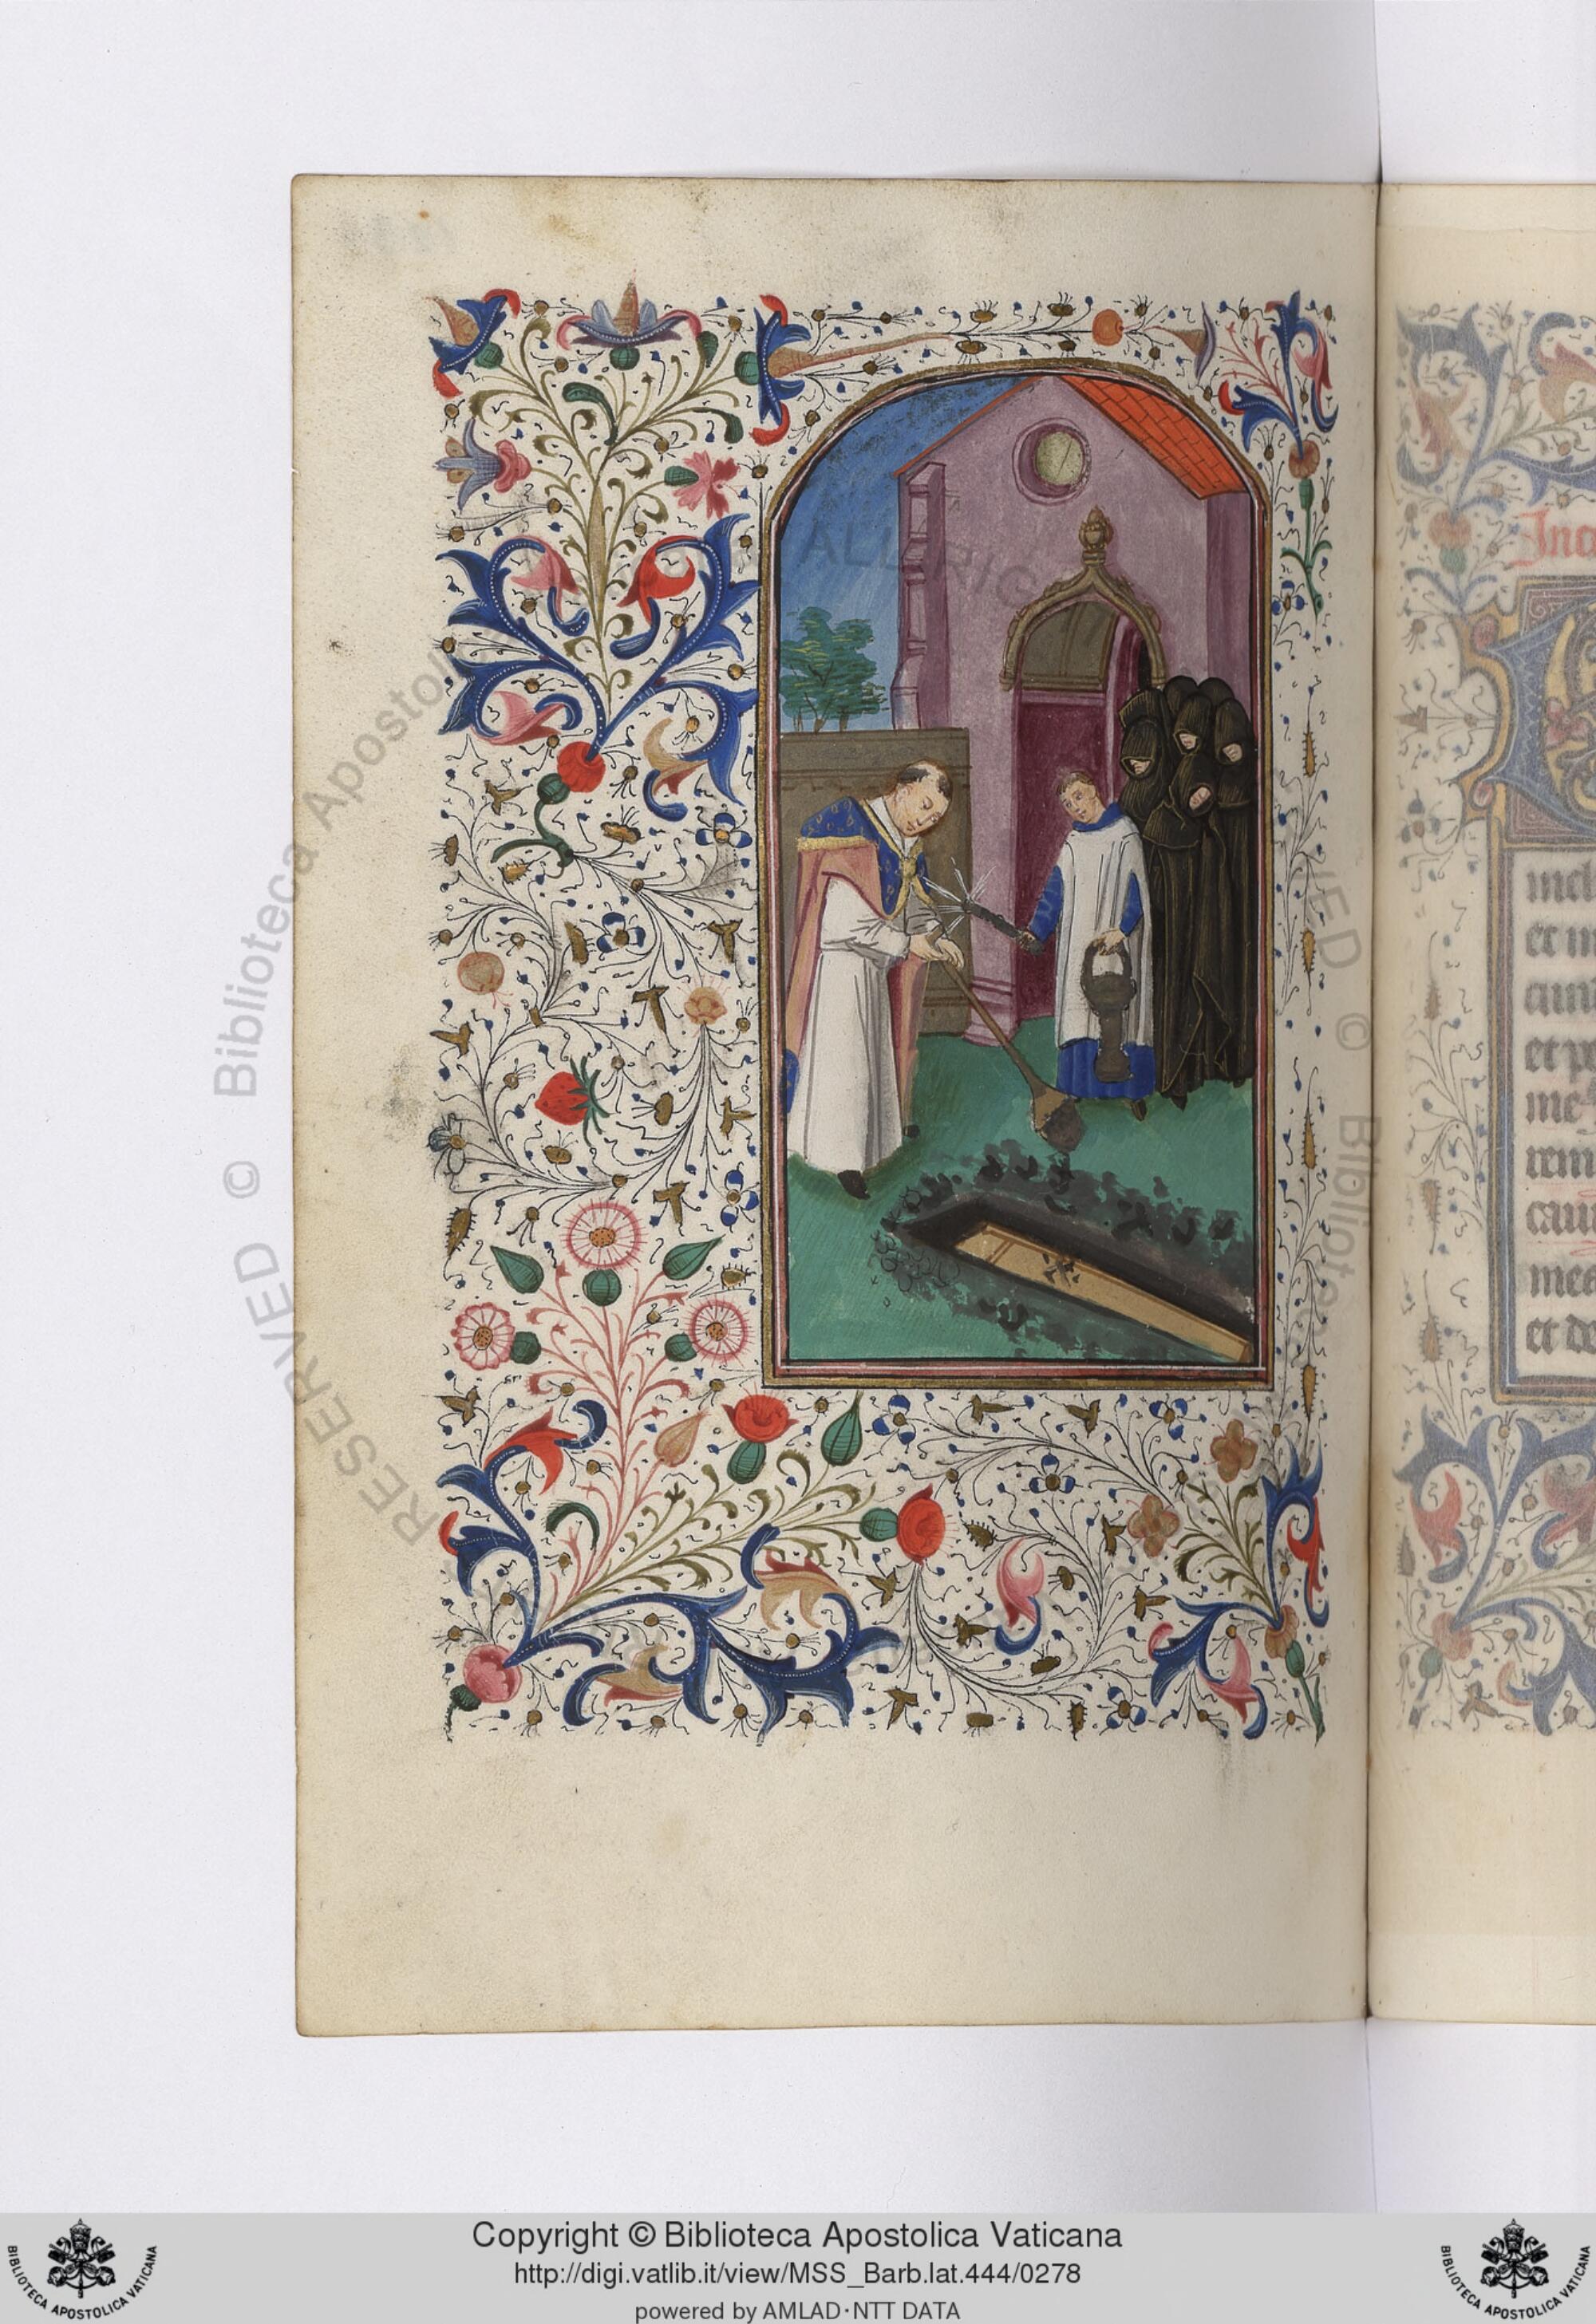 Inc
et m
et p
me
cau
mes
et de
ALL RIG
RESERVED © Biblioteca Apostolica
VED © Bibliotec
Copyright © Biblioteca Apostolica Vaticana
http://digi.vatlib.it/view/MSS_Barb.lat.444/0278
powered by AMLAD·NTT DATA
BIBLIOTECA APOSTOLICA VATICANA
BIBLIOTECA APOSTOLICA VATICANA